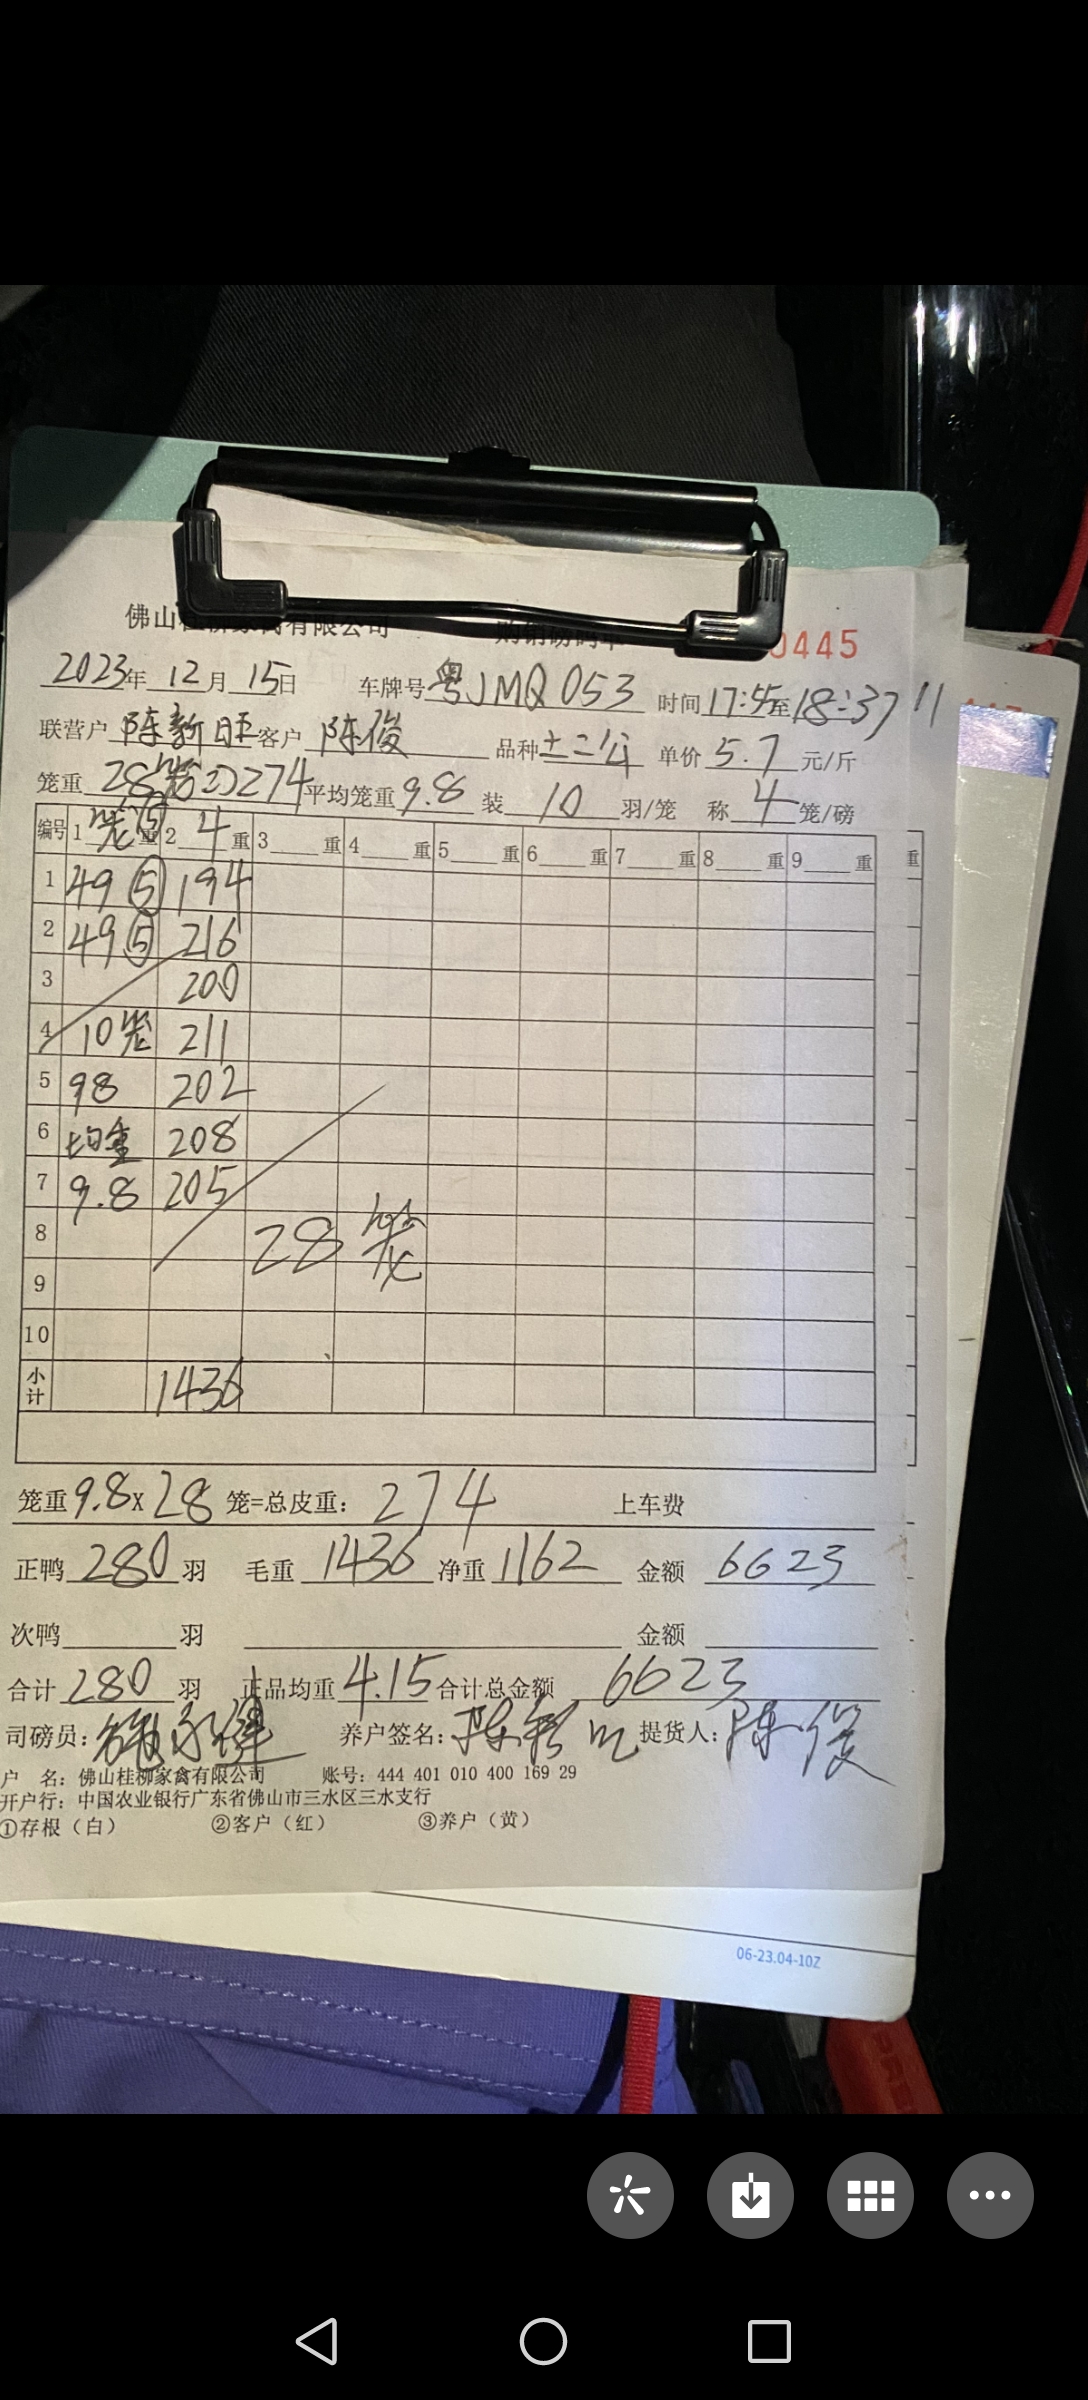 佛山桂柳家禽有限公司 购销磅码单 0445
2023年12月15日 车牌号粤JMQ053 时间17:45至18:37 11
联营户 陈新旺 客户 陈俊 品种土二公 单价5.7元/斤
笼重28笼 274 平均笼重9.8 装10羽/笼 称4笼/磅
编号 1笼⑤重 2 4重 3重 4重 5重 6重 7重 8重 9重 重
1 49⑤ 194
2 49⑤ 216
3 200
4 10笼 211
5 98 202
6 均重 208
7 9.8 205
8 28笼
9
10
小计 1436
笼重9.8X28笼=总皮重: 274 上车费
正鸭280羽 毛重1436 净重1162 金额6623
次鸭 羽 金额
合计280羽 正品均重4.15 合计总金额6623
司磅员: 养户签名:陈新旺 提货人:陈俊
户 名: 佛山桂柳家禽有限公司 账号: 444 401 010 400 169 29
开户行: 中国农业银行广东省佛山市三水区三水支行
①存根（白） ②客户（红） ③养户（黄）
06-23.04-10Z